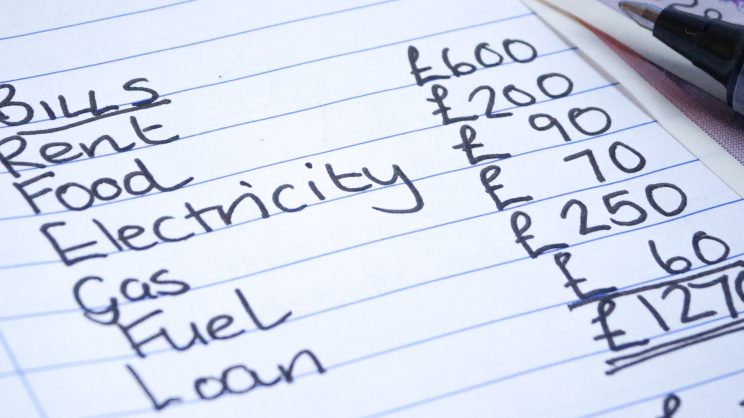 BILLS
Rent £600
Food £200
Electricity £ 90
Gas £ 70
Fuel £250
Loan £ 60
£1270